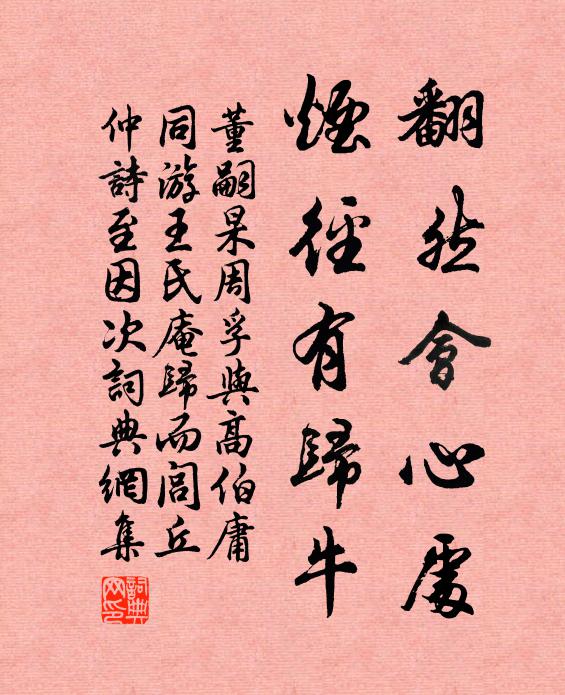 翻然會心處
煙徑有歸牛
董嗣杲周孚與高伯庸
同游王氏庵歸而閭丘
仲詩至因次詞典網集
詞典網印